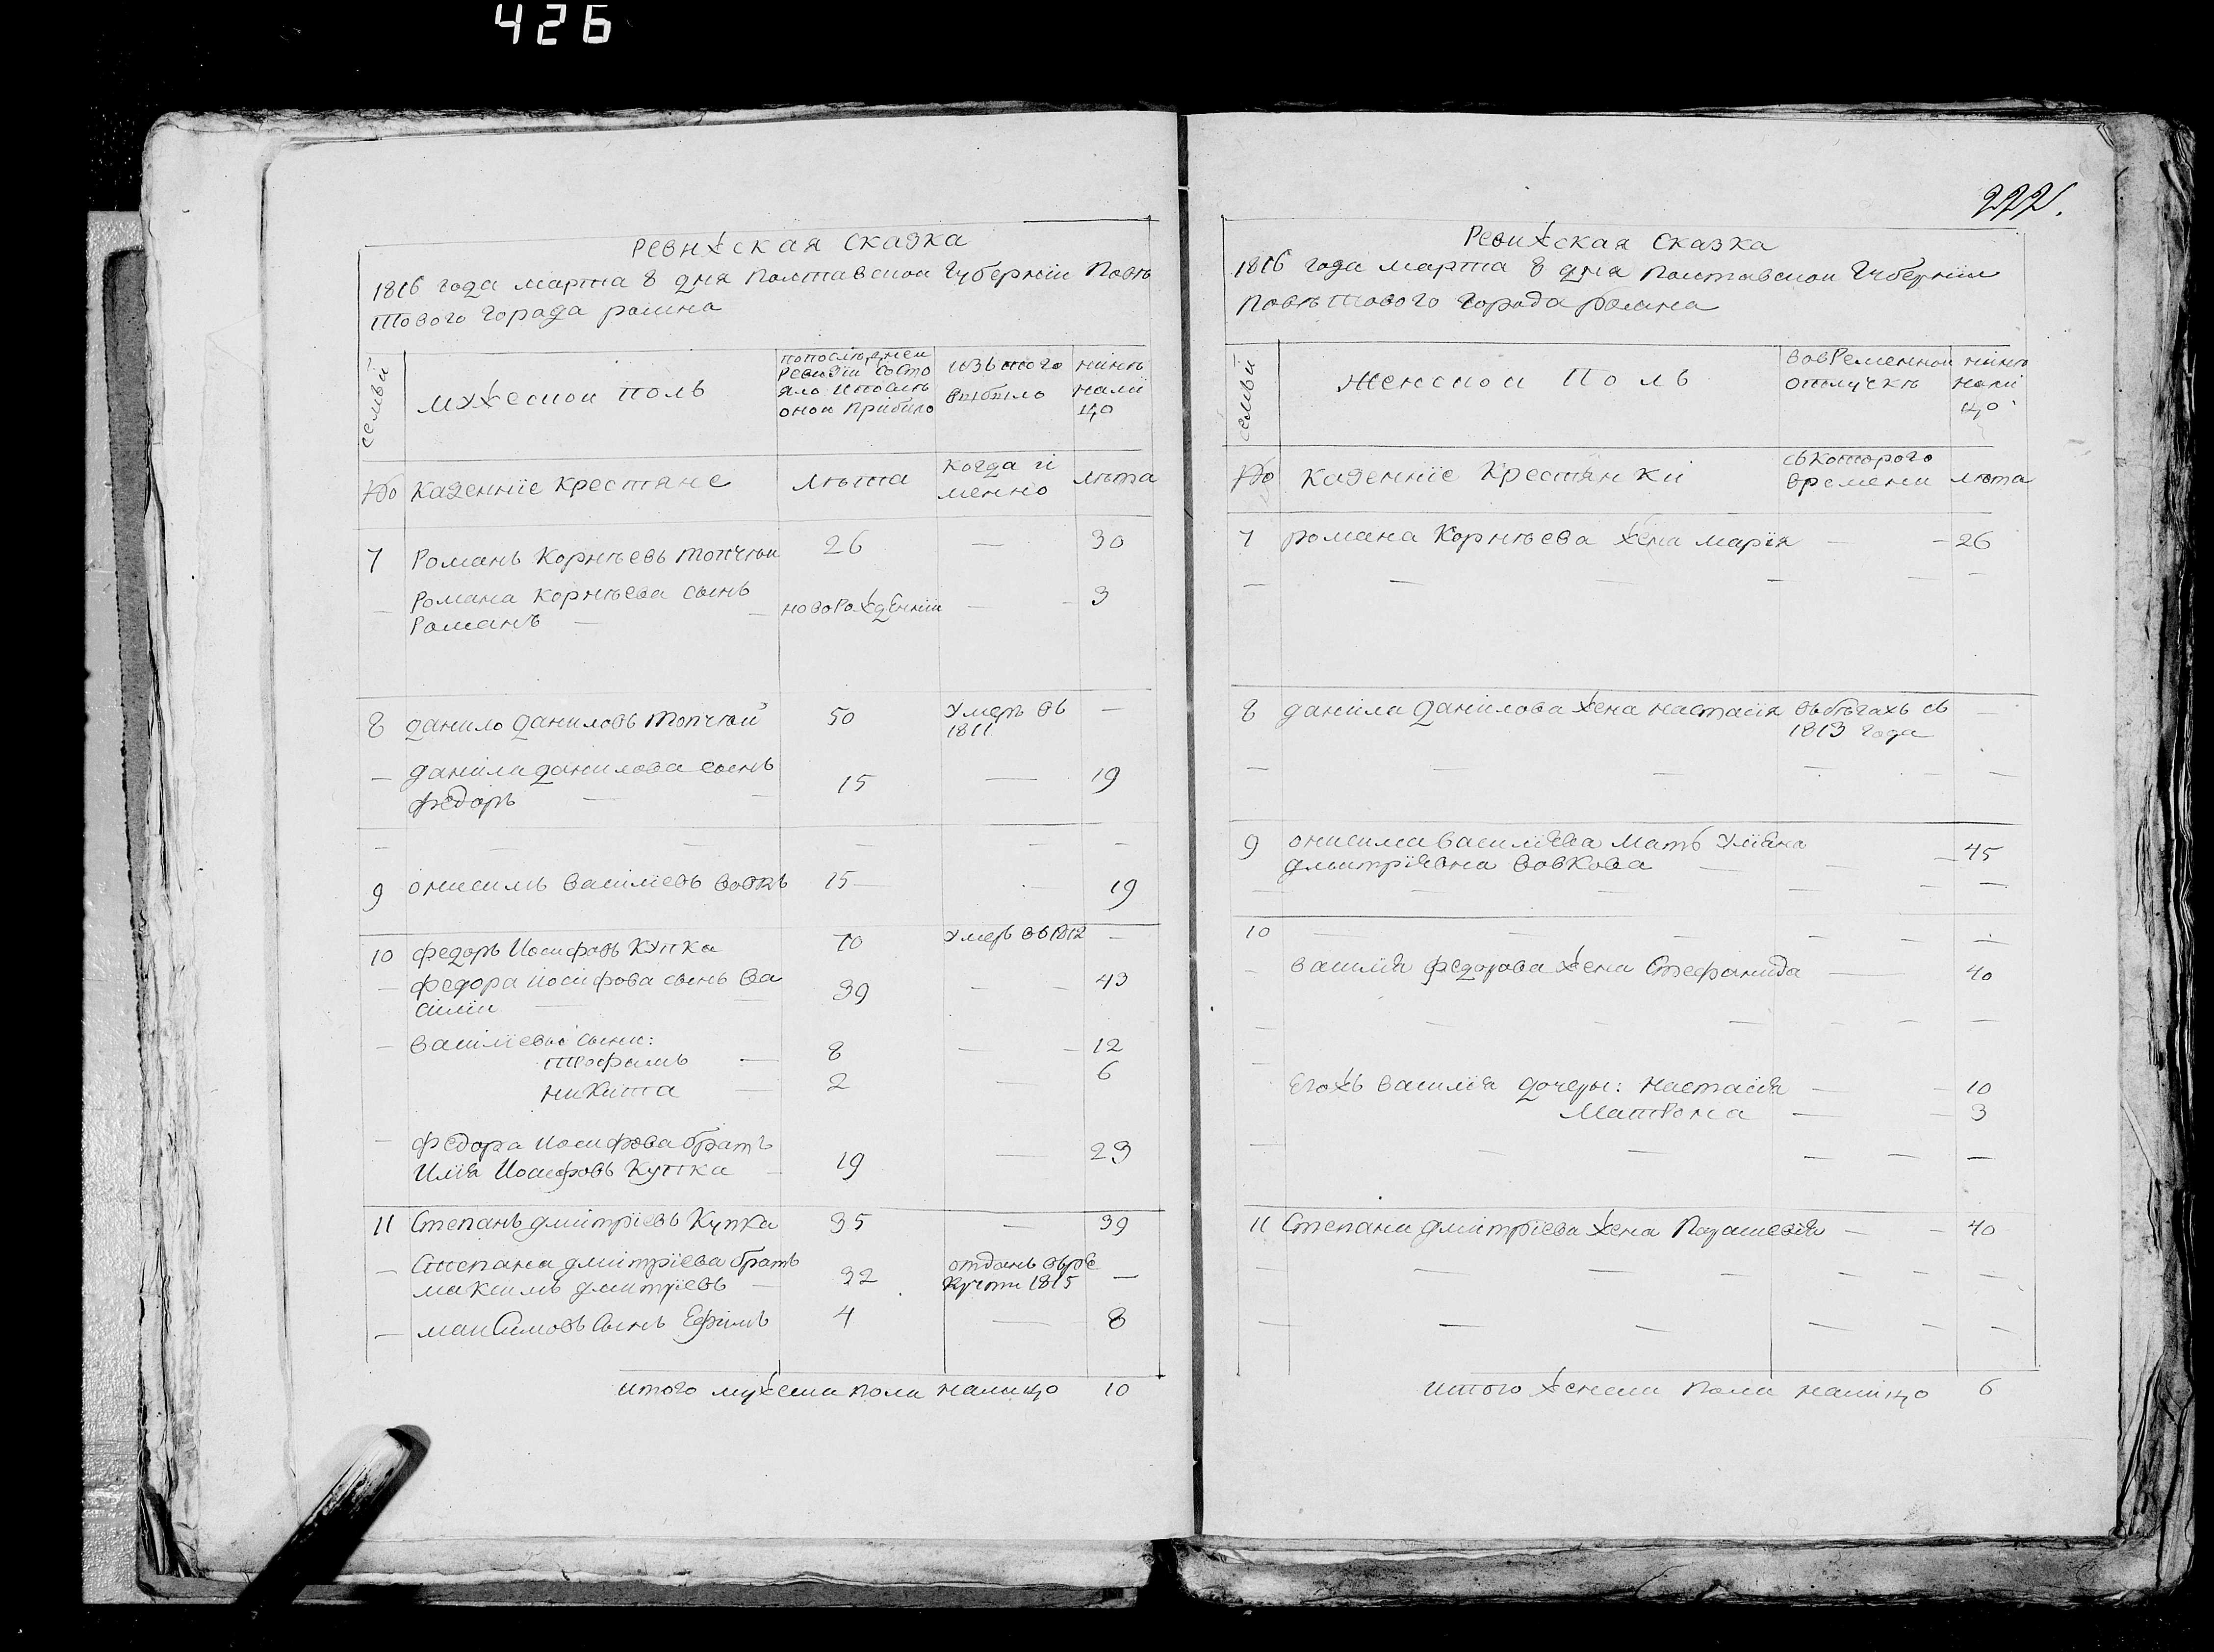 426
222.
Ревижская сказка
1816 года марта 8 дня Полтавскои Губернїи Повѣ
тового города ромна
семьи
мужескои поль
попослѣднеи
ревизїи состо
яло ипослѣ
онои прибило
изътого
выбило
нинѣ
нали
цо
№
Казеннїе крестяне
лѣта
когда и
менно
лѣта
7 Романъ Корнѣевъ Топчѣи 26 — 30
— Романа Корнѣева сынъ
Романъ — новорожденнїи — 3
8 данило даниловъ топчѣи 50 умеръ въ —
1811
— данила данилова сынъ
федоръ — 15 — 19
9 онисимъ василїевъ вовкъ 15 — 19
10 федоръ Иосифовъ купка 70 умеръ въ 1812 —
— федора иосифова сынъ ва
силїи — 39 — 43
— василїевы сыни:
трофимъ — 8 — 12
никита — 2 — 6
— федора иосифова братъ
Илїя Иосифовъ Купка — 19 — 23
11 Степанъ дмитрїевъ Купка 35 — 39
— Степана дмитрїева братъ
максимъ дмитрїевъ — 32 отданъ врѣ
Крути 1815 —
— максимовъ сынъ Ефимъ 4 — 8
итого мужеска пола налицо 10
Ревижская Сказка
1816 года марта 8 дня Полтавскои Губернїи
Повѣтового города ромна
семьи
Женскои Поль
вовременнои
отлучкѣ
нинѣ
нали
цо
№
казеннїе Крестянки
съкоторого
времени
лѣта
7 романа Корнѣева жена марїя — 26
8 данила данилова жена настасїя вьбѣгахъ съ —
1813 года
9 онисима василїева мать Улїяна
дмитрїевна вовкова — 45
10
василїя федорова жена Стефанида — 40
Егожъ василїя дочеры: настасїя — 10
Матрона — 3
11 Степана дмитрїева жена Парасевїя — 40
итого женска пола налицо 6